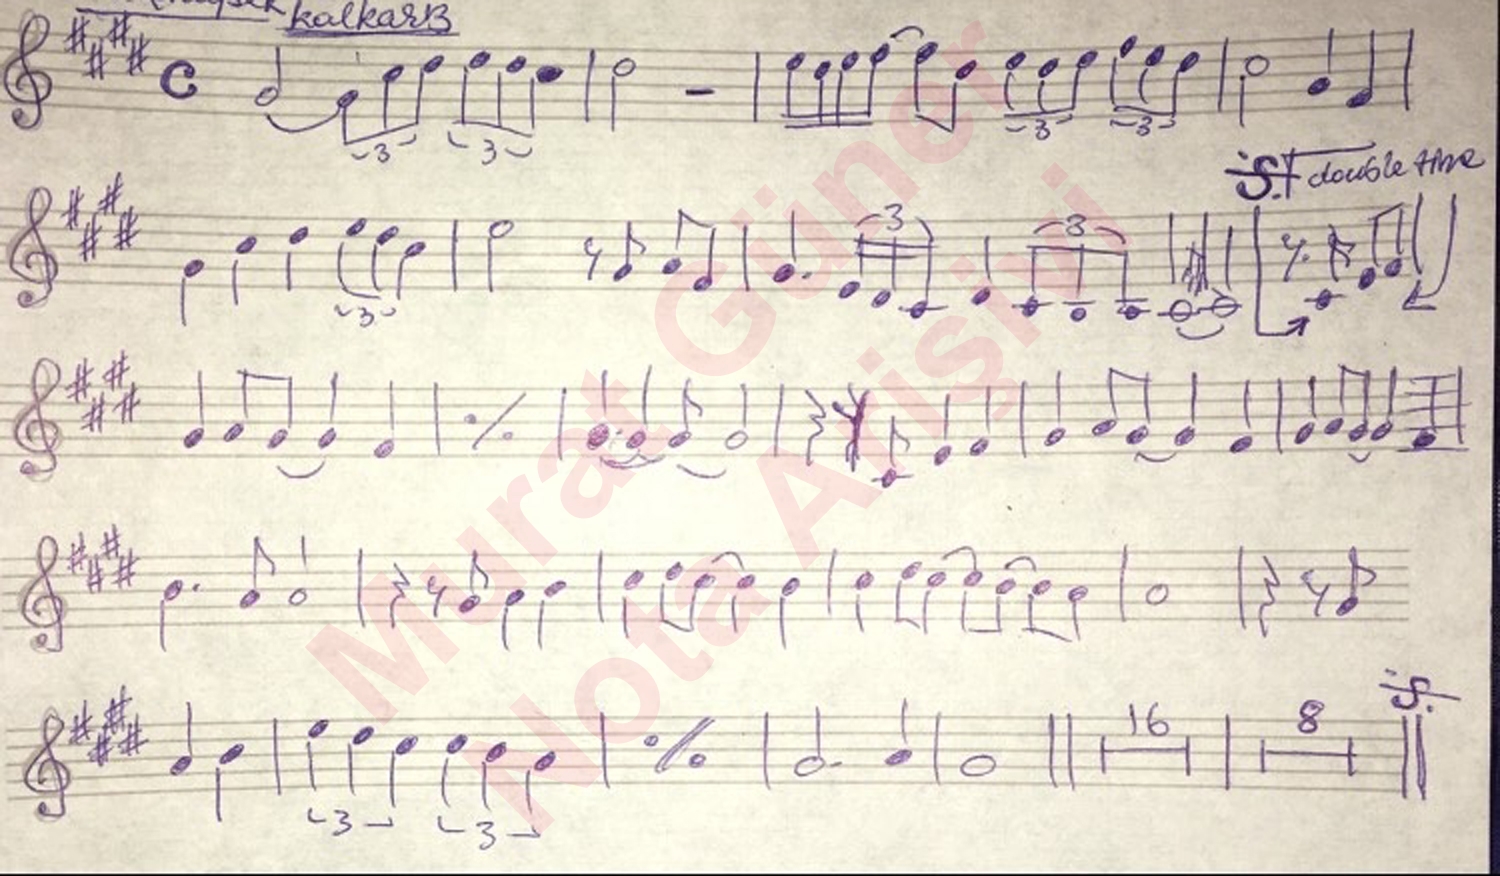 kalkarB
C
3 3 3 3
double time
3 3 3
16 8
3 3
Murat Güner
Nota Arişivi